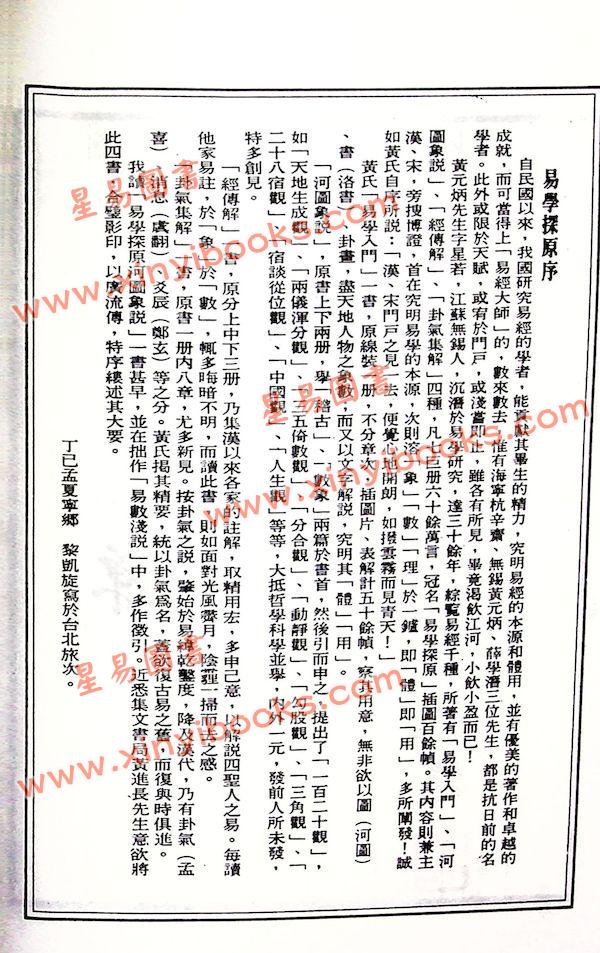 易學探原序
自民國以來，我國研究易經的學者，能貢獻其畢生的精力，究明易經的本源和體用，並有優美的著作和卓越的
成就，而可當得上「易經大師」的，數來數去，惟有海寧杭辛齋、無錫黃元炳、薛學潛三位先生，都是抗日前的名
學者。此外或限於天賦，或宥於門戶，或淺嘗即止，雖各有所見，畢竟渴飲江河，小飲小盈而已！
黃元炳先生字星若，江蘇無錫人，沉潛於易學研究，達三十餘年，綜覽易經千種，所著有「易學入門」、「河
圖象説」、「經傳解」、「卦氣集解」四種，凡七三册六十餘萬言，冠名「易學探原」插圖百餘幀。其内容則兼主
漢、宋，旁搜博證，首在究明易學的本源，次則溶「象」「數」「理」於一鑪，即「體」即「用」，多所闡發！誠
如黃氏自序所説：「漢、宋門戶之見一去，便覺心地開朗，如撥雲霧而見青天！」
黃氏「易學入門」一書，原線裝一册，不分章次，插圖片、表解計五十餘幀，察其用意，無非欲以圖（河圖）
、書（洛書）、卦畫，盡天地人物之象數，而又以文字解説，究明其「體」「用」。
「河圖象説」，原書上下兩册，舉「稽古」、「數象」兩篇於書首，然後引而申之，提出了「一百二十觀」，
如「天地生成觀」、「兩儀渾分觀」、「三五倚數觀」、「分合觀」、「動靜觀」、「勾股觀」、「三角觀」、「
二十八宿觀」、「宿談從位觀」、「中國觀」、「人生觀」等等，大抵哲學科學並舉，内外一元，發前人所未發，
特多創見。
「經傳解」一書，原分上中下三册，乃集漢以來各家的註解，取精用宏，多申己意，以解説四聖人之易。每讀
他家易註，於「象」於「數」，輒多晦暗不明，而讀此書，則如面對光風霽月，陰霾一掃而去之感。
「卦氣集解」一書，原書一册内八章，尤多新見。按卦氣之説，肇始於易緯乾鑿度，降及漢代，乃有卦氣（孟
喜）、消息（虞翻）、爻辰（鄭玄）等之分。黃氏揭其精要，統以卦氣爲名，蓋欲復古易之舊，而復與時俱進。
我讀「易學探原河圖象説」一書甚早，並在拙作「易數淺説」中，多作徵引。近悉集文書局黃進長先生意欲將
此四書，合璧影印，以廣流傳，特序縷述其大要。
丁巳孟夏寧鄉　黎凱旋寫於台北旅次。
星易圖書
www.xinyibooks.com
星易圖書
www.xinyibooks.com
星易圖書
www.xinyibooks.com